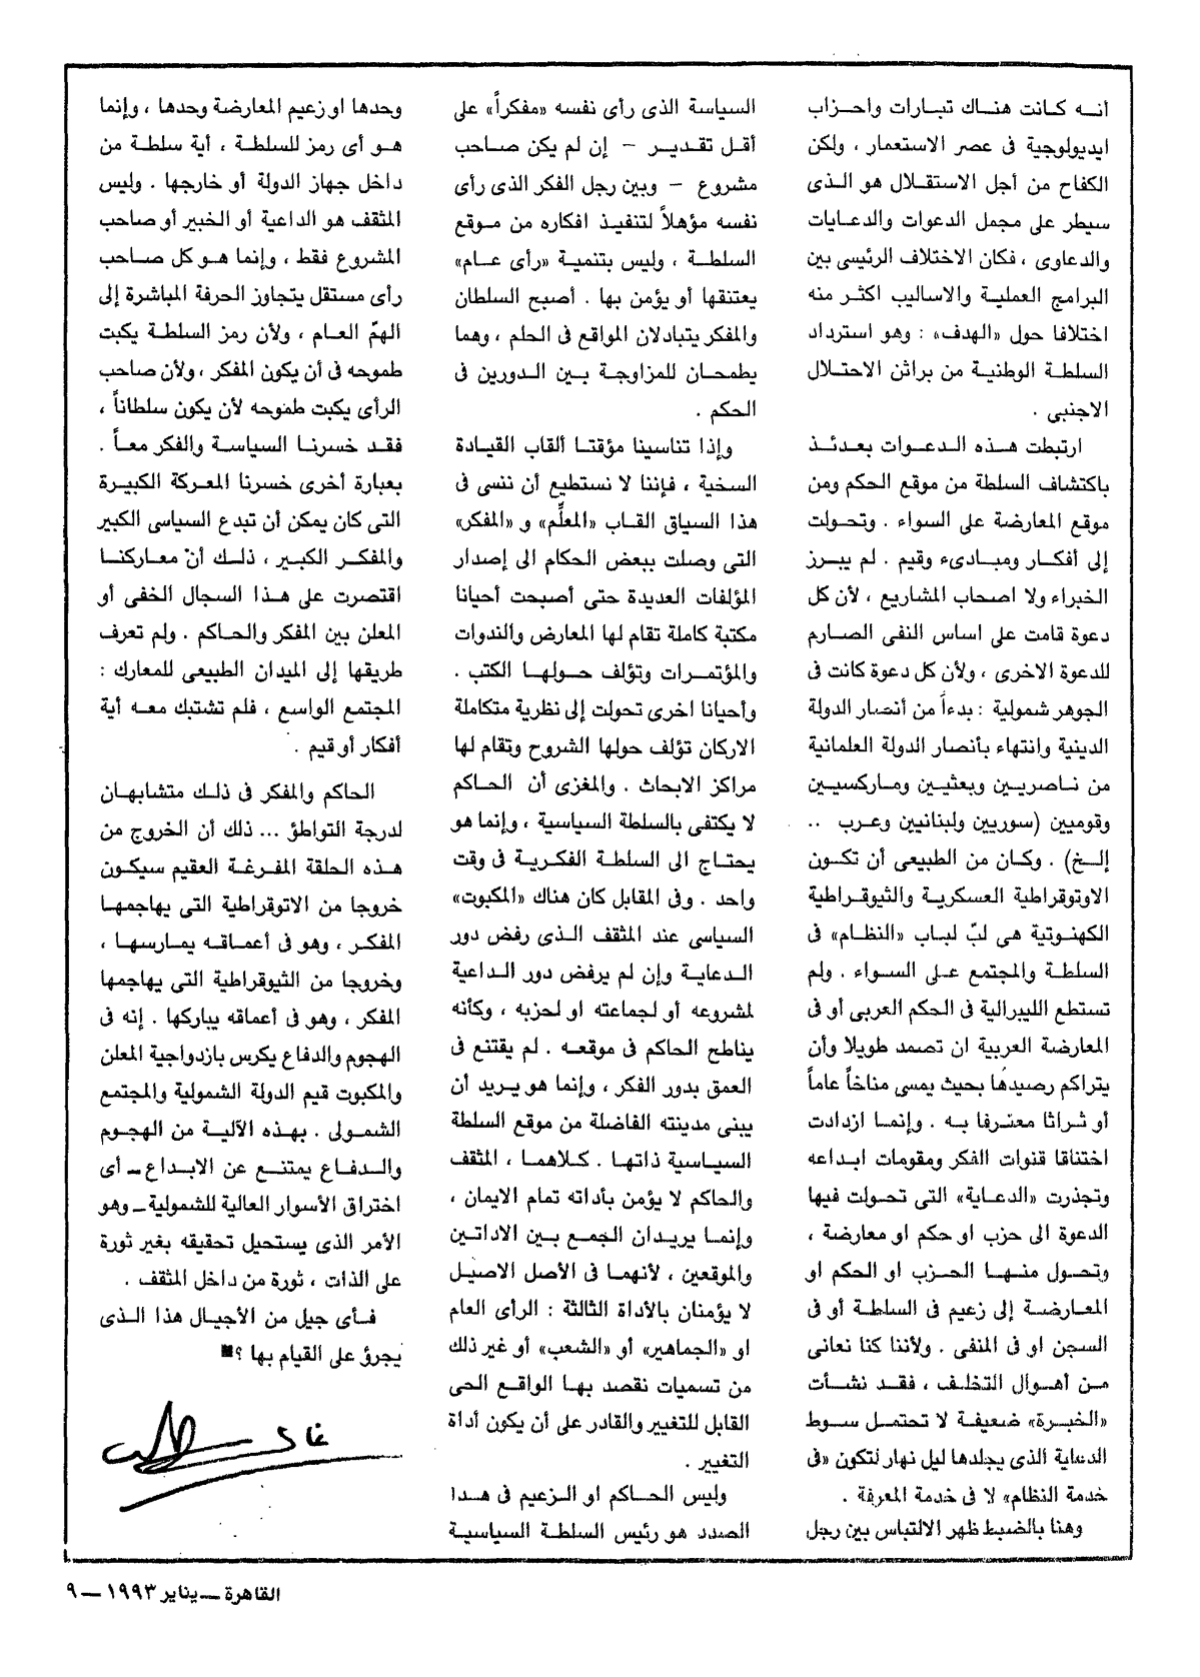 أنه كانت هناك تيارات واحزاب
ايديولوجية فى عصر الاستعمار ، ولكن
الكفاح من أجل الاستقلال هو الذى
سيطر على مجمل الدعوات والدعايات
والدعاوى ، فكان الاختلاف الرئيسى بين
البرامج العملية والاساليب اكثر منه
اختلافا حول «الهدف» : وهو استرداد
السلطة الوطنية من براثن الاحتلال
الاجنبى .
ارتبطت هذه الدعوات بعدئذ
باكتشاف السلطة من موقع الحكم ومن
موقع المعارضة على السواء . وتحولت
إلى أفكار ومبادىء وقيم . لم يبرز
الخبراء ولا اصحاب المشاريع ، لأن كل
دعوة قامت على اساس النفى الصارم
للدعوة الاخرى ، ولأن كل دعوة كانت فى
الجوهر شمولية : بدءاً من أنصار الدولة
الدينية وانتهاء بأنصار الدولة العلمانية
من ناصريين وبعثيين وماركسيين
وقوميين (سوريين ولبنانيين وعرب ..
إلخ) . وكان من الطبيعى أن تكون
الاوتوقراطية العسكرية والثيوقراطية
الكهنوتية هى لبّ لباب «النظام» فى
السلطة والمجتمع على السواء . ولم
تستطع الليبرالية فى الحكم العربى أو فى
المعارضة العربية ان تصمد طويلا وأن
يتراكم رصيدها بحيث يمسى مناخاً عاماً
أو ثراثا معترفا به . وإنما ازدادت
اختناقا قنوات الفكر ومقومات ابداعه
وتجذرت «الدعاية» التى تحولت فيها
الدعوة الى حزب او حكم او معارضة ،
وتحول منها الحزب او الحكم او
المعارضة إلى زعيم فى السلطة أو فى
السجن او فى المنفى . ولأننا كنا نعانى
من أهوال التخلف ، فقد نشأت
«الخبرة» ضعيفة لا تحتمل سوط
الدعاية الذى يجلدها ليل نهار لتكون «فى
خدمة النظام» لا فى خدمة المعرفة .
وهنا بالضبط ظهر الالتباس بين رجل
السياسة الذى رأى نفسه «مفكراً» على
أقل تقدير – إن لم يكن صاحب
مشروع – وبين رجل الفكر الذى رأى
نفسه مؤهلاً لتنفيذ افكاره من موقع
السلطة ، وليس بتنمية «رأى عام»
يعتنقها أو يؤمن بها . أصبح السلطان
والمفكر يتبادلان المواقع فى الحلم ، وهما
يطمحان للمزاوجة بين الدورين فى
الحكم .
وإذا تناسينا مؤقتا ألقاب القيادة
السخية ، فإننا لا نستطيع أن ننسى فى
هذا السياق القاب «المعلِّم» و «المفكر»
التى وصلت ببعض الحكام الى إصدار
المؤلفات العديدة حتى أصبحت أحيانا
مكتبة كاملة تقام لها المعارض والندوات
والمؤتمرات وتؤلف حولها الكتب .
وأحيانا اخرى تحولت إلى نظرية متكاملة
الاركان تؤلف حولها الشروح وتقام لها
مراكز الابحاث . والمغزى أن الحاكم
لا يكتفى بالسلطة السياسية ، وإنما هو
يحتاج الى السلطة الفكرية فى وقت
واحد . وفى المقابل كان هناك «المكبوت»
السياسى عند المثقف الذى رفض دور
الدعاية وإن لم يرفض دور الداعية
لمشروعه أو لجماعته او لحزبه ، وكأنه
يناطح الحاكم فى موقعه . لم يقتنع فى
العمق بدور الفكر ، وإنما هو يريد أن
يبنى مدينته الفاضلة من موقع السلطة
السياسية ذاتها . كلاهما ، المثقف
والحاكم لا يؤمن بأداته تمام الايمان ،
وإنما يريدان الجمع بين الاداتين
والموقعين ، لأنهما فى الأصل الاصيل
لا يؤمنان بالأداة الثالثة : الرأى العام
او «الجماهير» أو «الشعب» أو غير ذلك
من تسميات نقصد بها الواقع الحى
القابل للتغيير والقادر على أن يكون أداة
التغيير .
وليس الحاكم او الزعيم فى هدا
الصدد هو رئيس السلطة السياسية
وحدها او زعيم المعارضة وحدها ، وإنما
هو أى رمز للسلطة ، أية سلطة من
داخل جهاز الدولة أو خارجها . وليس
المثقف هو الداعية أو الخبير أو صاحب
المشروع فقط ، وإنما هو كل صاحب
رأى مستقل يتجاوز الحرفة المباشرة إلى
الهمّ العام ، ولأن رمز السلطة يكبت
طموحه فى أن يكون المفكر ، ولأن صاحب
الرأى يكبت طموحه لأن يكون سلطاناً ،
فقد خسرنا السياسة والفكر معاً .
بعبارة أخرى خسرنا المعركة الكبيرة
التى كان يمكن أن تبدع السياسى الكبير
والمفكر الكبير ، ذلك أنّ معاركنا
اقتصرت على هذا السجال الخفى أو
المعلن بين المفكر والحاكم . ولم تعرف
طريقها إلى الميدان الطبيعى للمعارك :
المجتمع الواسع ، فلم تشتبك معه أية
أفكار أو قيم .
الحاكم والمفكر فى ذلك متشابهان
لدرجة التواطؤ ... ذلك أن الخروج من
هذه الحلقة المفرغة العقيم سيكون
خروجا من الاتوقراطية التى يهاجمها
المفكر ، وهو فى أعماقه يمارسها ،
وخروجا من الثيوقراطية التى يهاجمها
المفكر ، وهو فى أعماقه يباركها . إنه فى
الهجوم والدفاع يكرس بازدواجية المعلن
والمكبوت قيم الدولة الشمولية والمجتمع
الشمولى . بهذه الآلية من الهجوم
والدفاع يمتنع عن الابداع ــ أى
اختراق الأسوار العالية للشمولية ــ وهو
الأمر الذى يستحيل تحقيقه بغير ثورة
على الذات ، ثورة من داخل المثقف .
فأى جيل من الأجيال هذا الذى
يجرؤ على القيام بها ؟■
القاهرة ــ يناير ١٩٩٣ ــ ٩